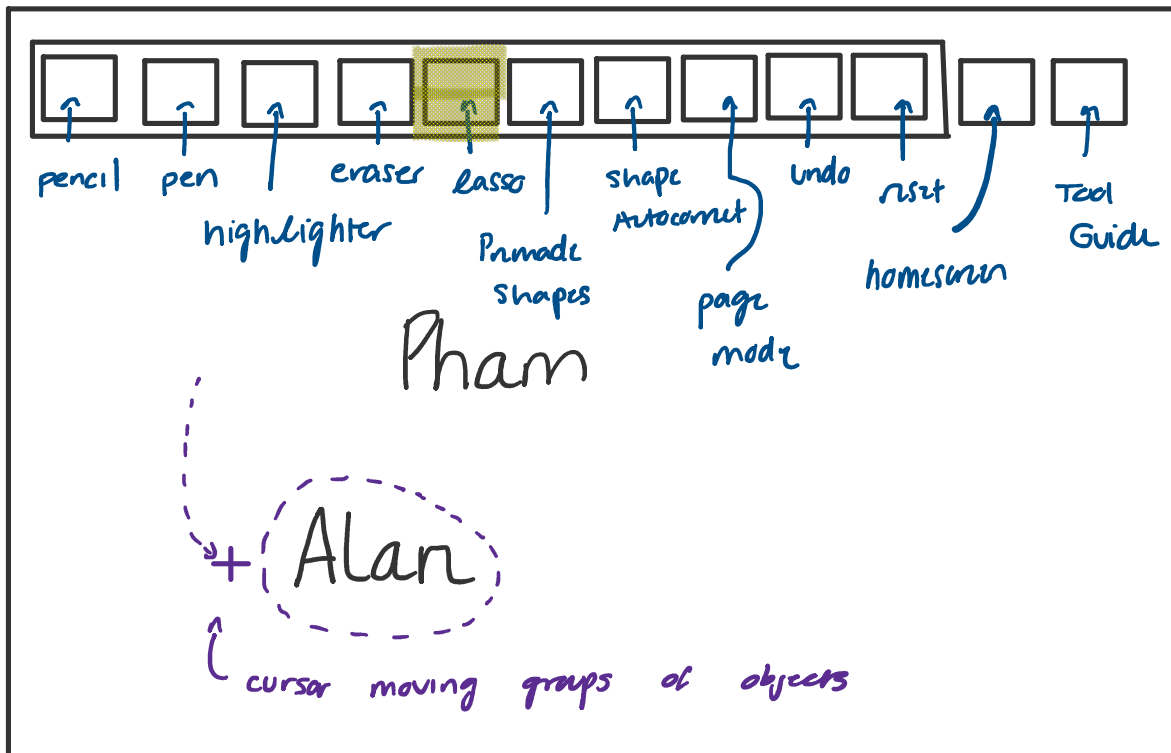 pencil
pen
highlighter
eraser
lasso
Premade
shapes
shape
Autocorrect
page
mode
undo
reset
homescreen
Tool
Guide
Pham
Alan
cursor moving groups of objects